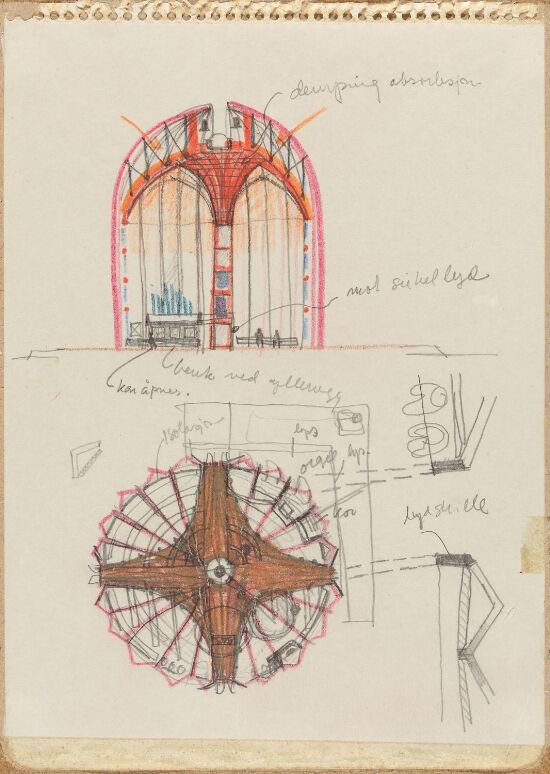 demping absorbsjon
mot sirkel lyd
benk ved yttervegg
kan åpnes.
Isolasjon
lys
orgel lys
kor
lydskille